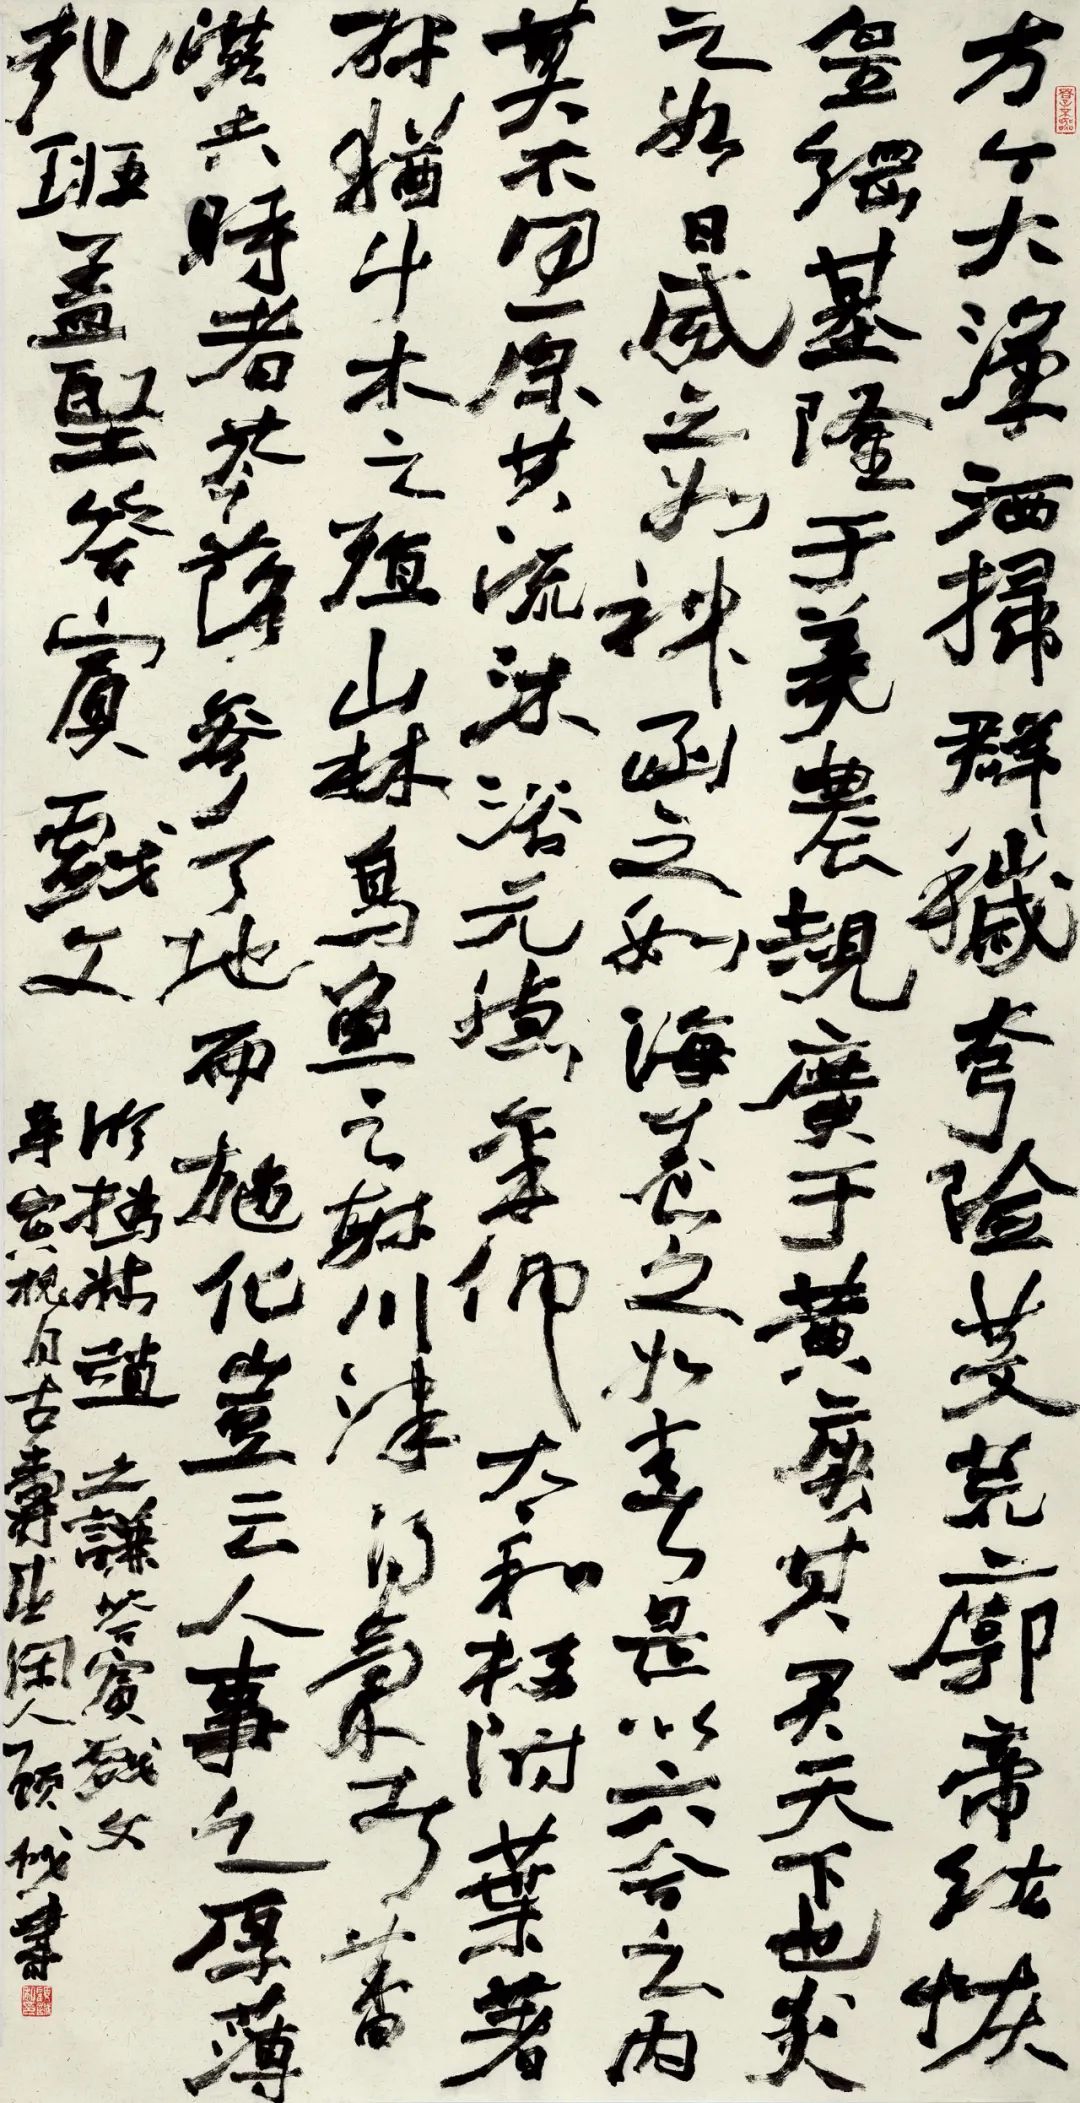 方今大漢洒掃群穢夸險芟荒廓帝紘恢
皇綱基隆于羲農規廣于黃唐其君天下也炎
之如日威之如神函之如海養之如春是以六合之内
莫不同原共流沐浴元德稟仰太和枝附葉著
辟猶屮木之殖山林鳥魚之毓川澤得氣者蕃
滋失時者苓落參天地而施化豈云人事之厚薄
哉班孟堅答賓戲文
臨撝叔趙之謙答賓戲文
寅秋月古壽閑人顧書